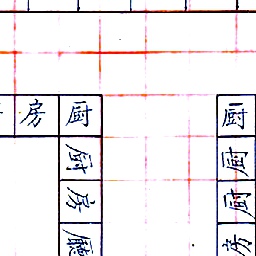 房厨
厨
房
廳
厨
厨
厨
房